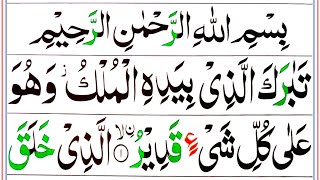 بِسْمِ اللهِ الرَّحْمٰنِ الرَّحِيْمِ
تَبٰرَكَ الَّذِیْ بِيَدِهِ الْمُلْكُ ؗ وَهُوَ
عَلٰی كُلِّ شَیْءٍ قَدِيْرُ ۙﹰ۝۱ الَّذِیْ خَلَقَ